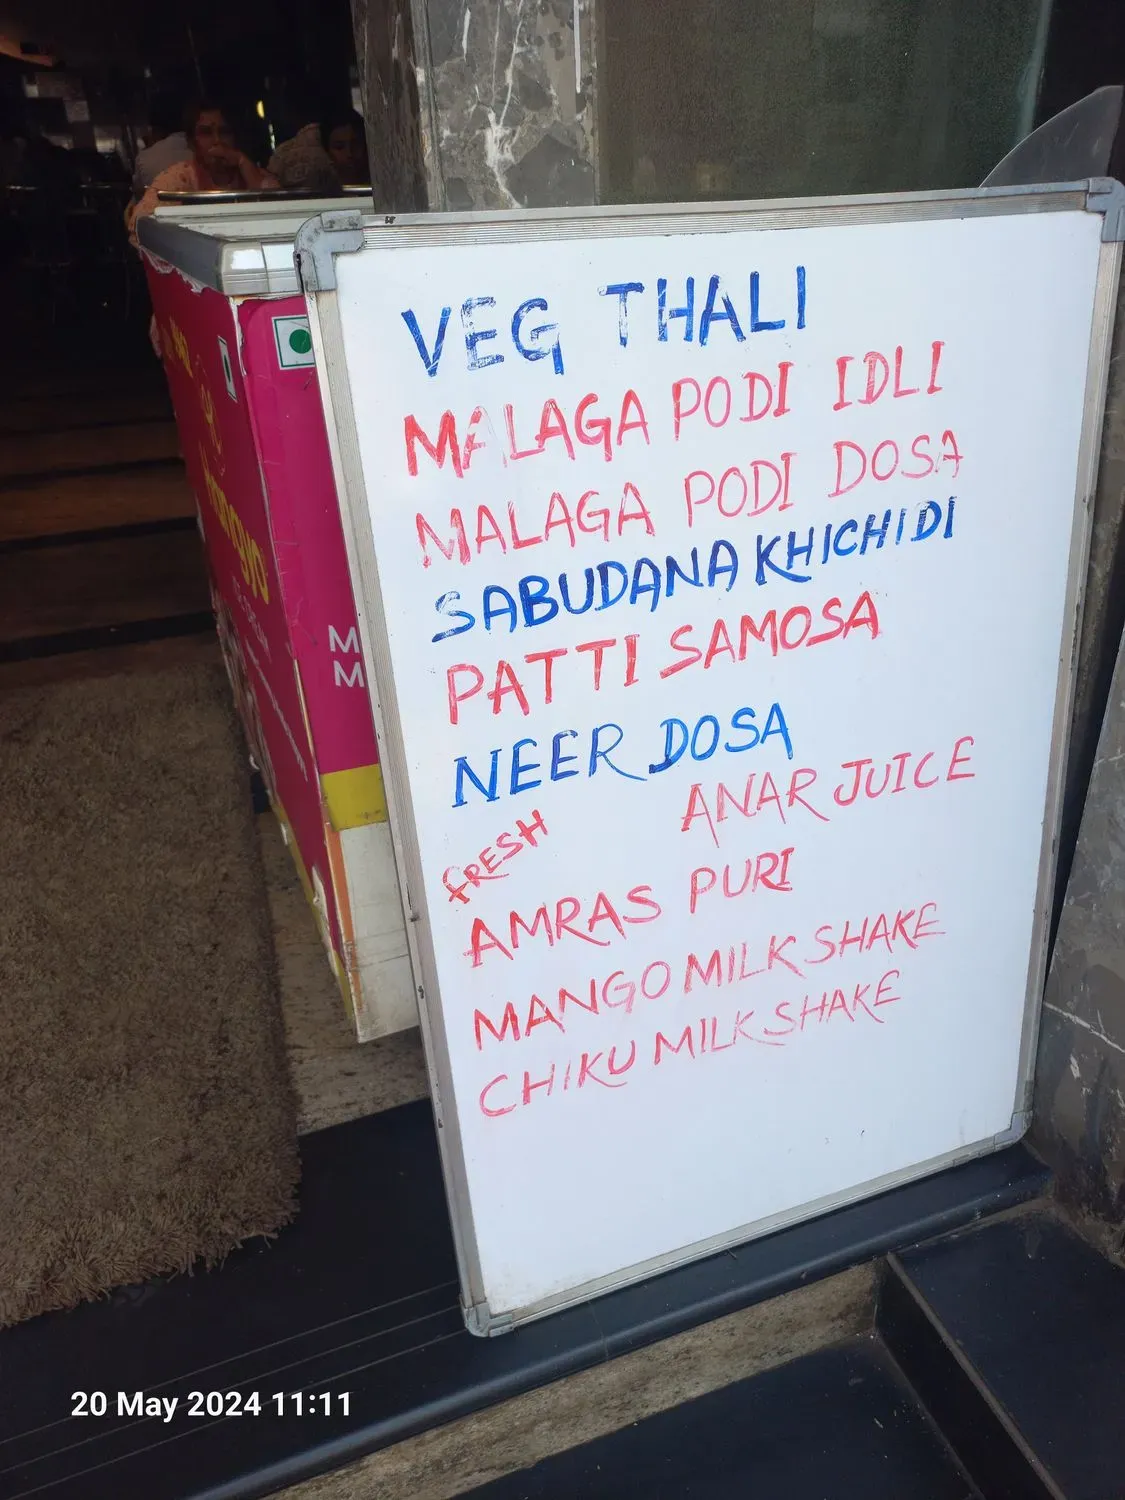 VEG THALI
MALAGA PODI IDLI
MALAGA PODI DOSA
SABUDANA KHICHIDI
PATTI SAMOSA
NEER DOSA
FRESH ANAR JUICE
AMRAS PURI
MANGO MILK SHAKE
CHIKU MILK SHAKE
20 May 2024 11:11